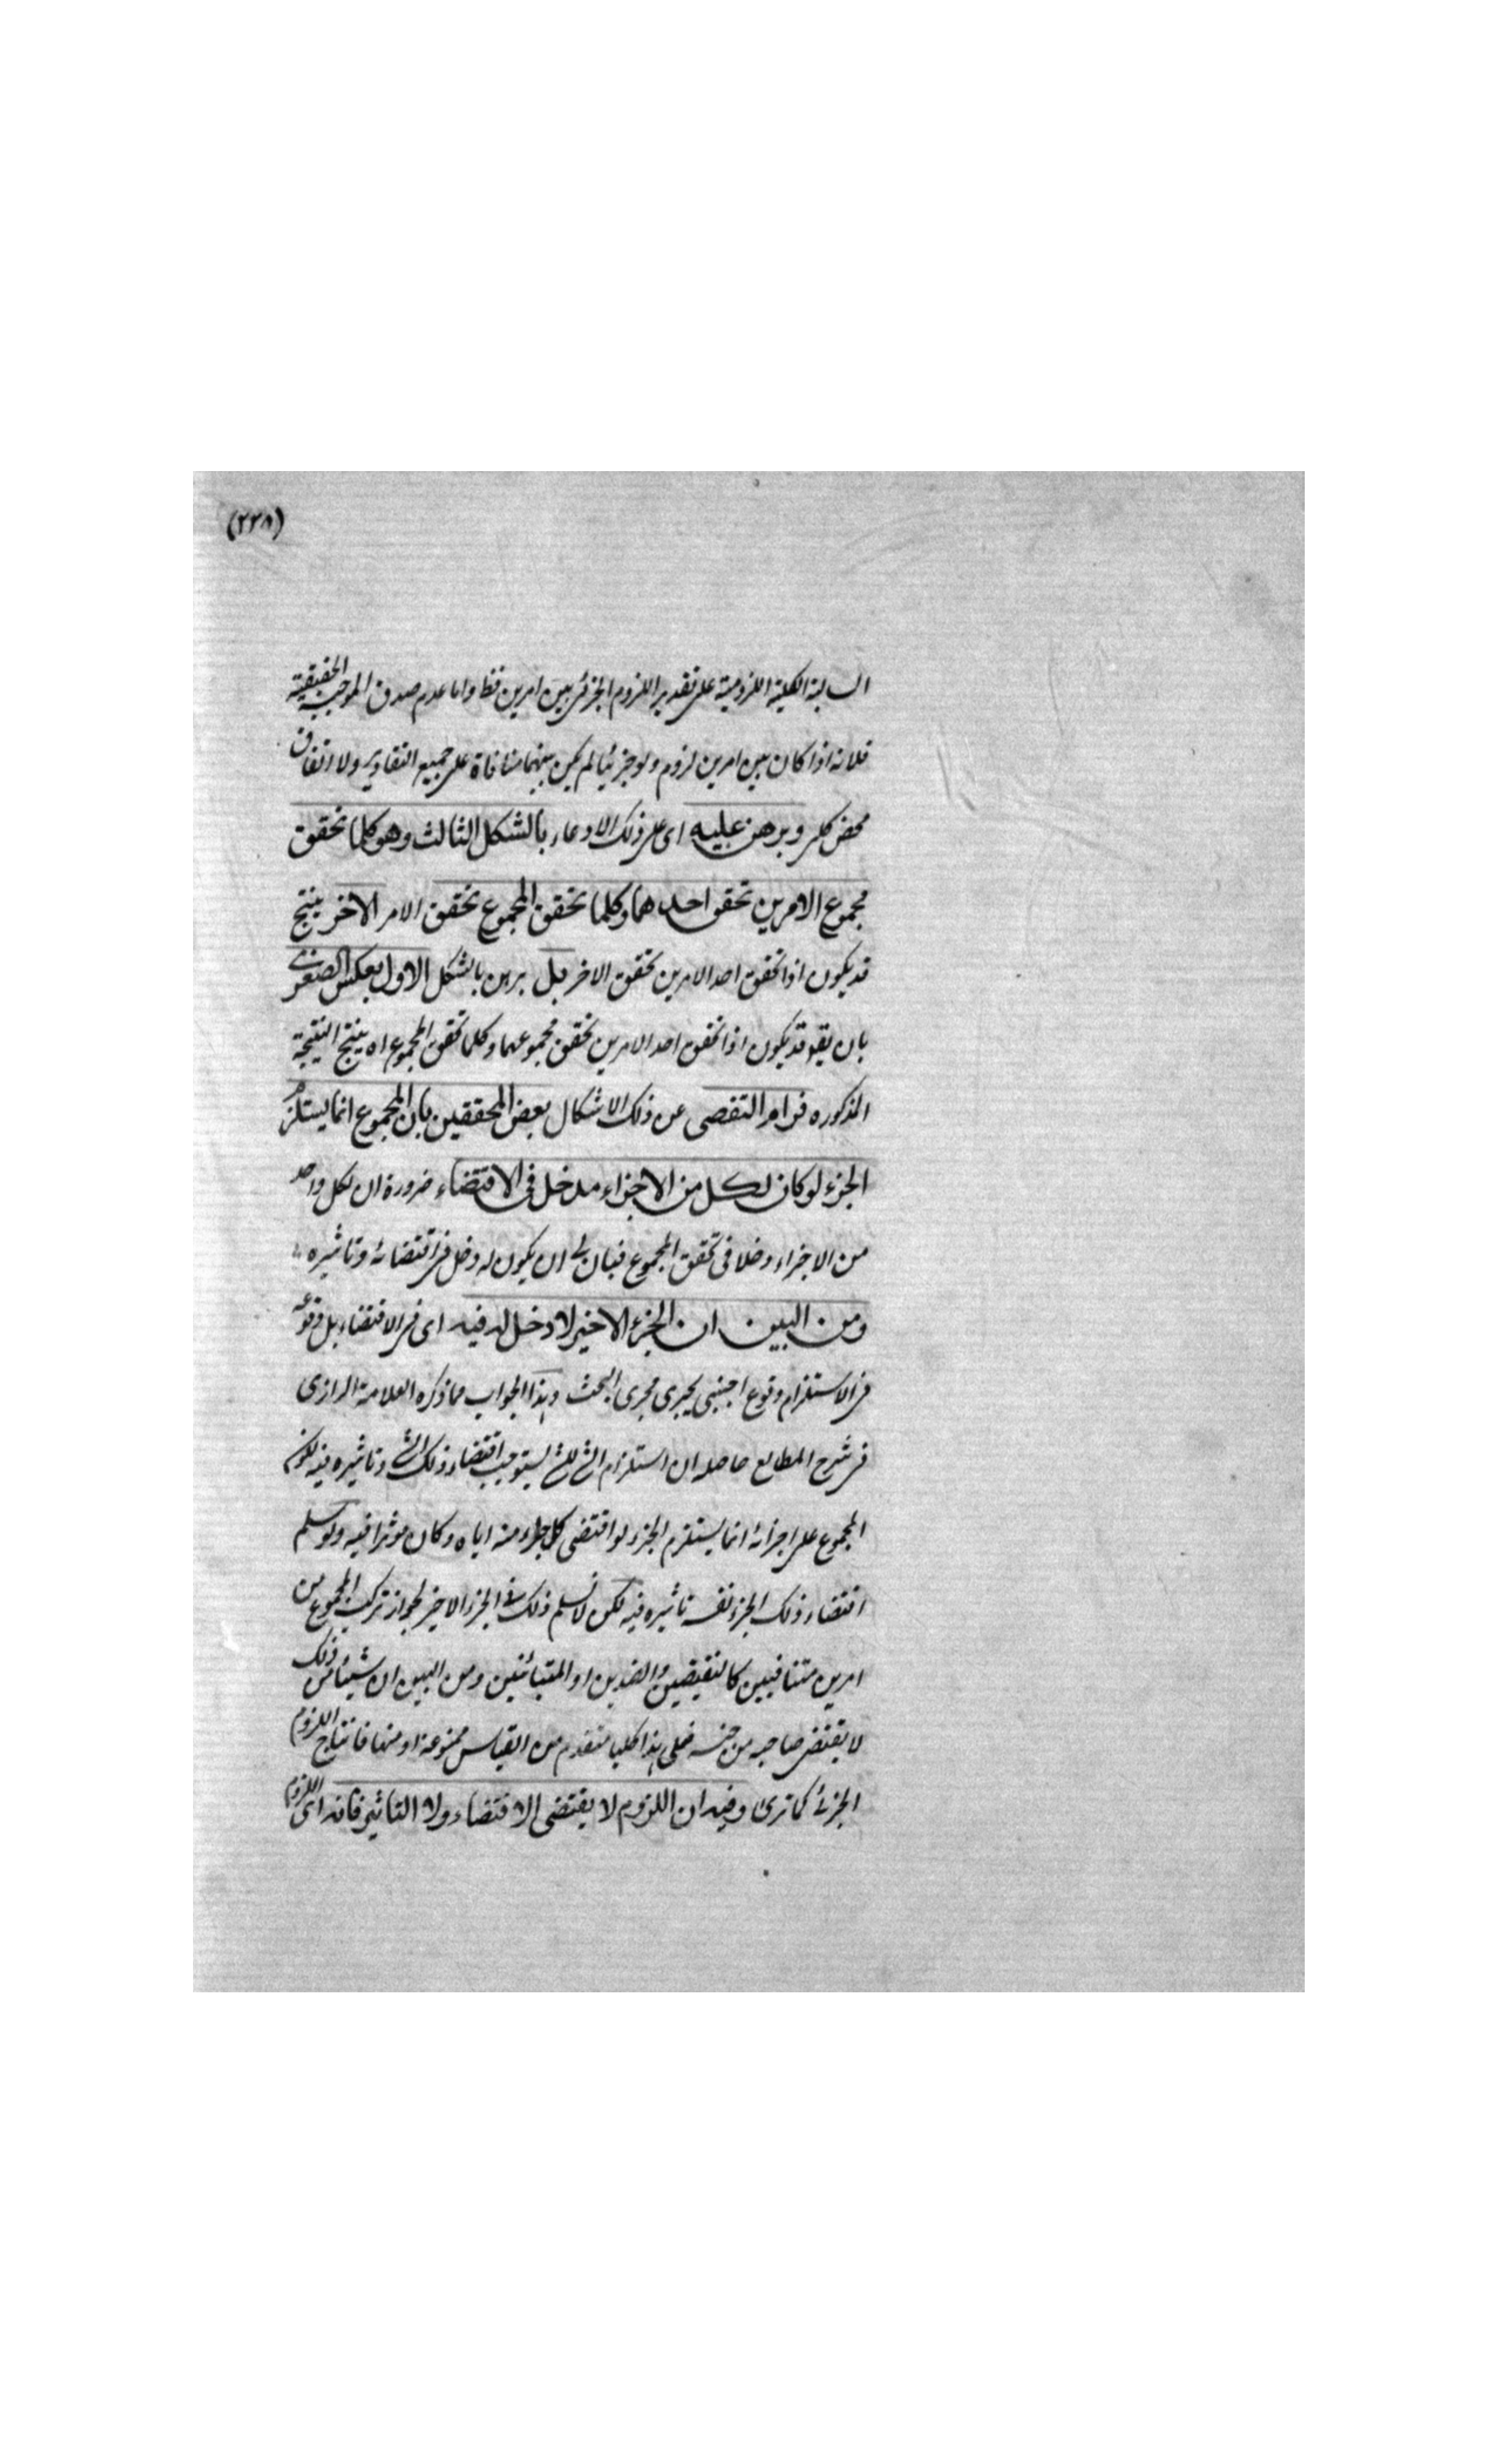 (٢٢٨)
السالبة الكلية اللزومية على تقدير اللزوم الجزئى بين امرين فظ واما عدم صدق الموجبة الحقيقية
فلانه اذا كان بين امرين لزوم ولو جزئيا لم يكن بينهما منافاة على جميع التقادير ولا اتفاق
محض كلى وبرهن عليه اى على ذلك الادعاء بالشكل الثالث وهو كلما تحقق
مجموع الامرين تحقق احدهما وكلما تحقق المجموع تحقق الامر الاخر ينتج
قد يكون اذا تحقق احد الامرين تحقق الاخر بل برهن بالشكل الاول بعكس الصغرى
بان يقو قد يكون اذا تحقق احد الامرين تحقق مجموعهما وكلما تحقق المجموع اه ينتج النتيجة
المذكوره فرام التفصى عن ذلك الاشكال بعض المحققين بان المجموع انما يستلزم
الجزء لو كان لكل من الاجزاء مدخل فى الاقتضاء ضرورة ان لكل واحد
من الاجزاء دخلا فى تحقق المجموع فبان ان يكون له دخل فى اقتضائه وتاثيره
ومن البين ان الجزء الاخير لا دخل له فيه اى فى الاقتضاء بل وقوعه
فى الاستلزام وقوع اجنبى يجرى مجرى البحث وهذا الجواب مما ذكره العلامة الرازى
فى شرح المطالع حاصله ان استلزام الشئ للشئ يستوجب اقتضاء ذلك الشئ وتاثيره فيه لكون
المجموع على اجزائه انما يستلزم الجزء لو اقتضى كل جزء منه اياه وكان موثرا فيه ولو سلم
اقتضاء ذلك الجزء نفسه تاثيره فيه لكن لا نسلم ذلك فى الجزء الاخير لجواز تركب المجموع من
امرين متنافيين كالنقيضين والضدين او المتبائنين ومن البين ان شيئا من ذلك
لا يقتضى صاحبه من جنسه فعلى هذا كليا متقدم من القياس ممنوعة او منها فانتاج اللزوم
الجزئى كما ترى وفيه ان اللزوم لا يقتضى الاقتضاء ولا التاثير فانه اى اللزوم